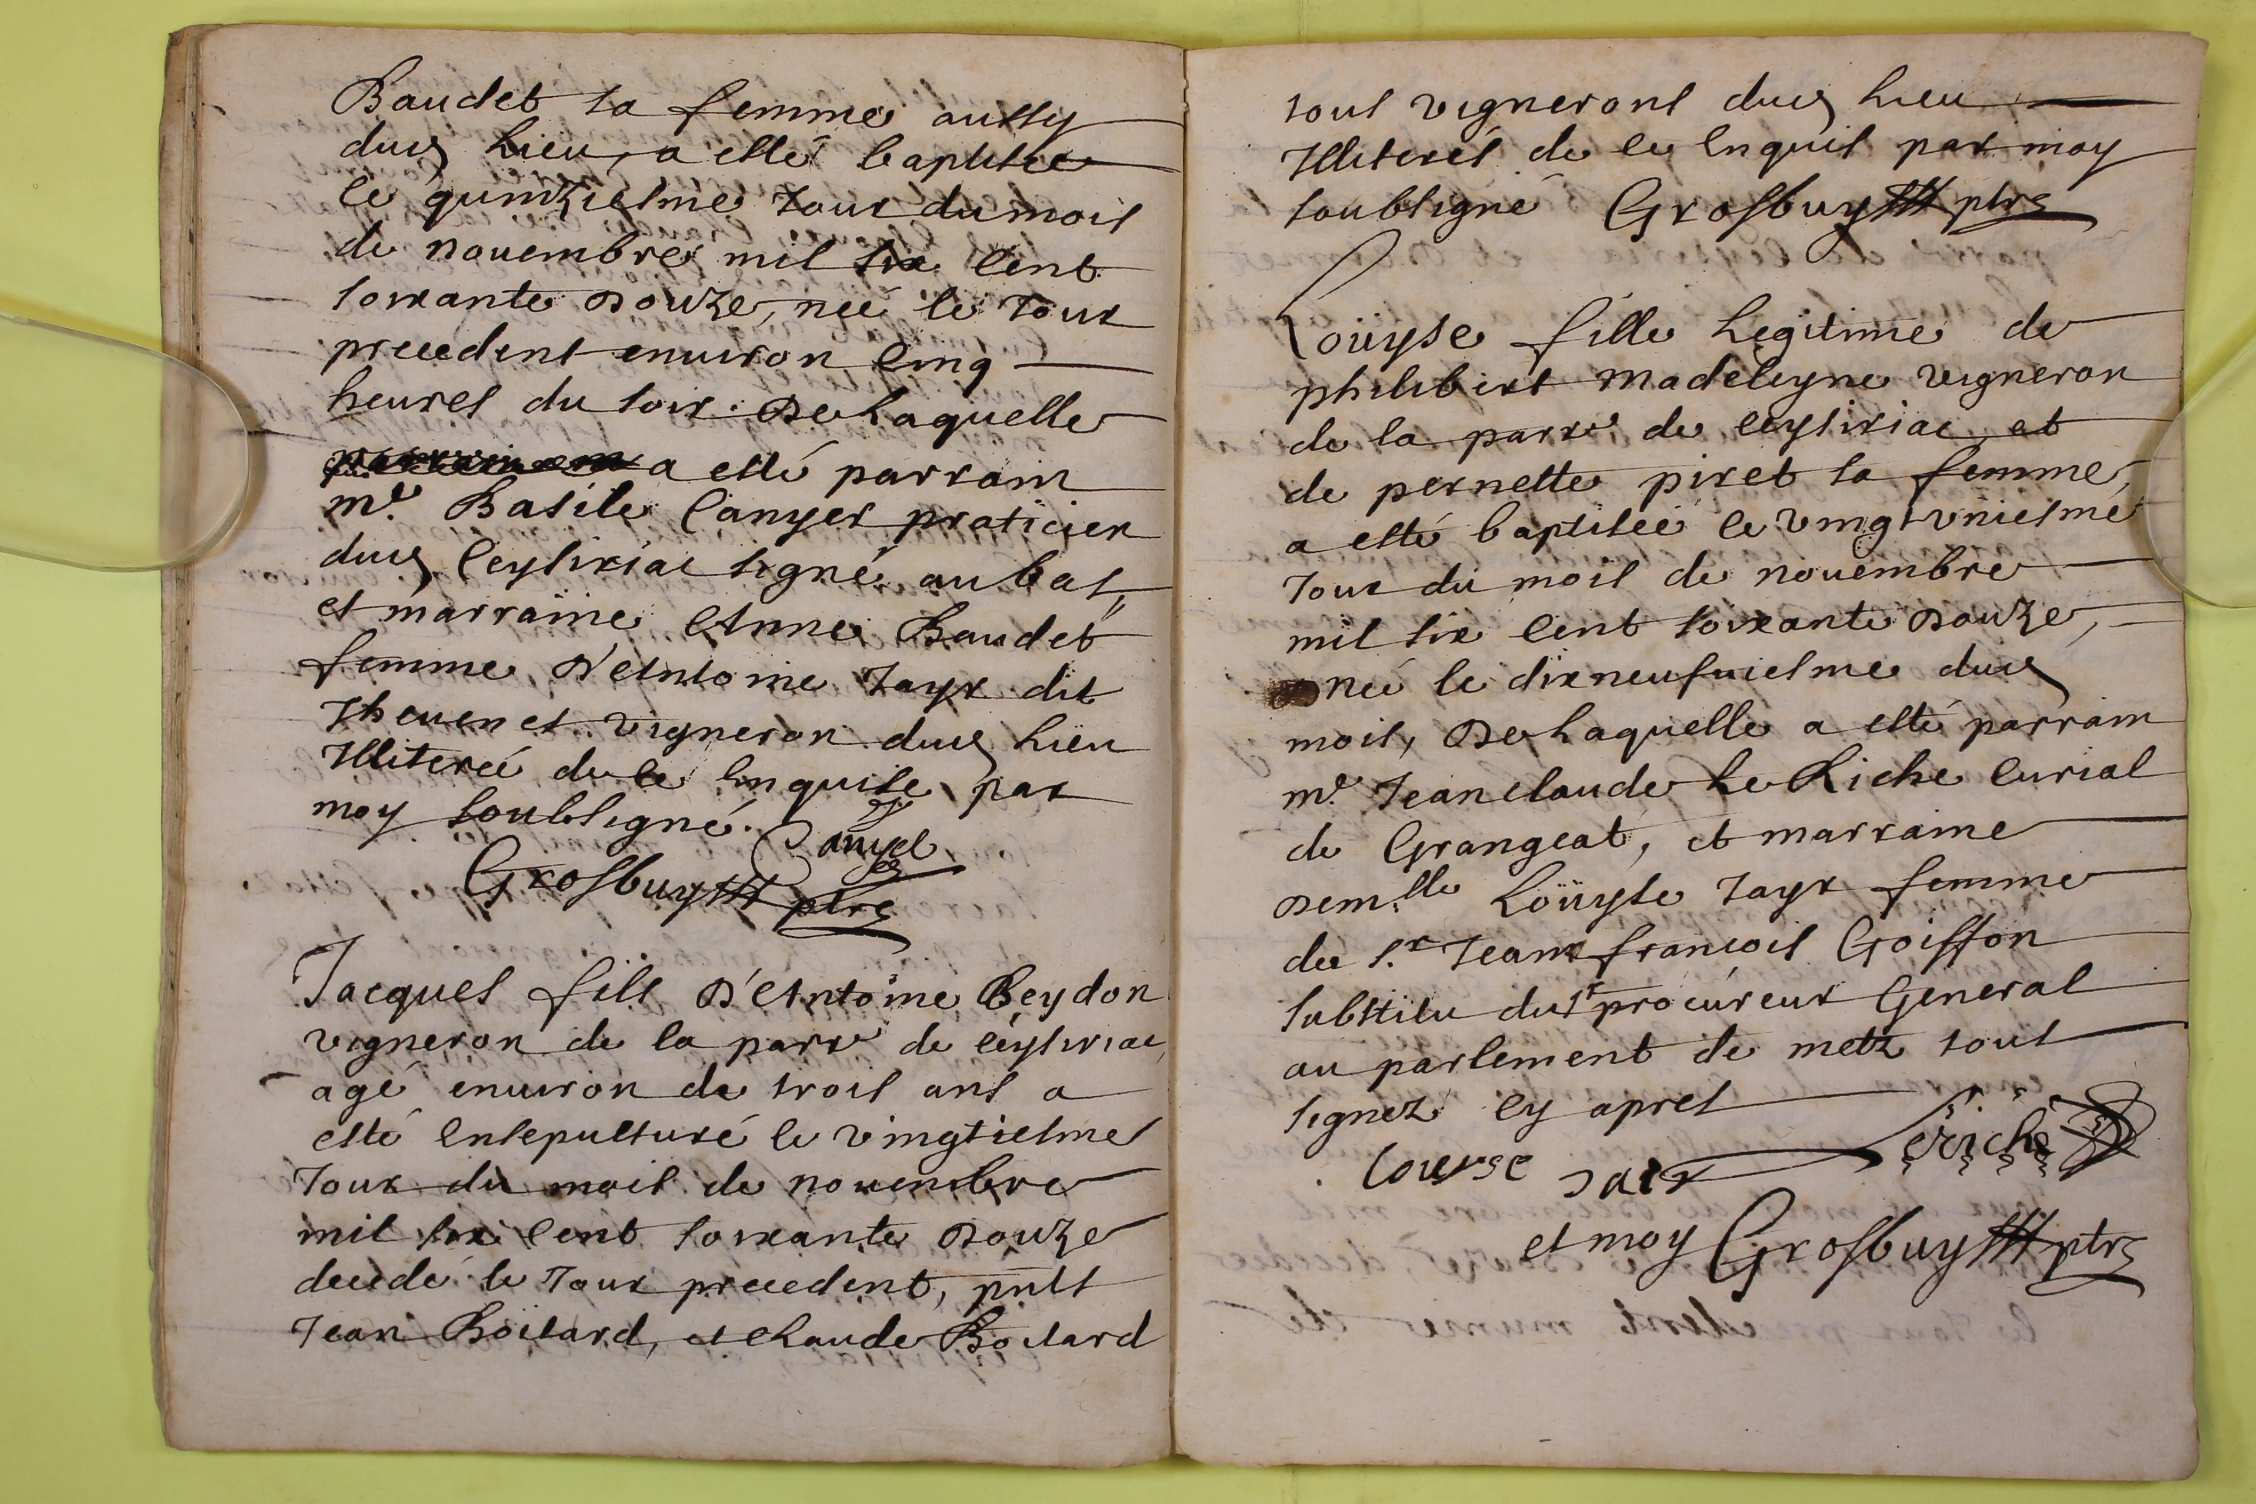 Baudet sa femme aussy
dud lieu, a esté baptisée
le quinziesme Jour du mois
de nouembre mil six cent
soixante Douze, née le Jour
precedent enuiron cinq
heures du soir. De Laquelle
a esté parrain
me. Basile Canyet praticien
dud Ceysiriac signé au bas,
et marraine Anne Baudet
femme D'Antoine Jayr dit
Theuenet vigneron dud lieu
Illiterée de ce enquise par
moy soubsigné. Canyet
Grosbuy ptre
Jacques fils D'Antoine Beydon
vigneron de la parre de Ceysiriac,
agé enuiron de trois ans a
esté ensepulturé le vingtiesme
Jour du mois de nouembre
mil six cent soixante Douze
decedé le Jour precedent, pnts
Jean Boisard, et Claude Boisard
tous vignerons dud lieu
Illiterés de ce enquis par moy
soubsigné Grosbuy ptre
Loüyse fille Legitime de
philibert madeleyne vigneron
de la parre de Ceysiriac, et
de pernette piret sa femme,
a esté baptisée le vingtvniesme
Jour du mois de nouembre
mil six cent soixante Douze,
née le dixneufuiesme dud
mois, De Laquelle a esté parrain
me. Jean Claude Le Riche Curial
de Grangeat, et marraine
Demlle Loüyse Jayr femme
du Sr. Jean françois Goiffon
substitu du sr procureur General
au parlement de metz tous
signez cy apres
Louyse Jair Leriche
et moy Grosbuy ptre